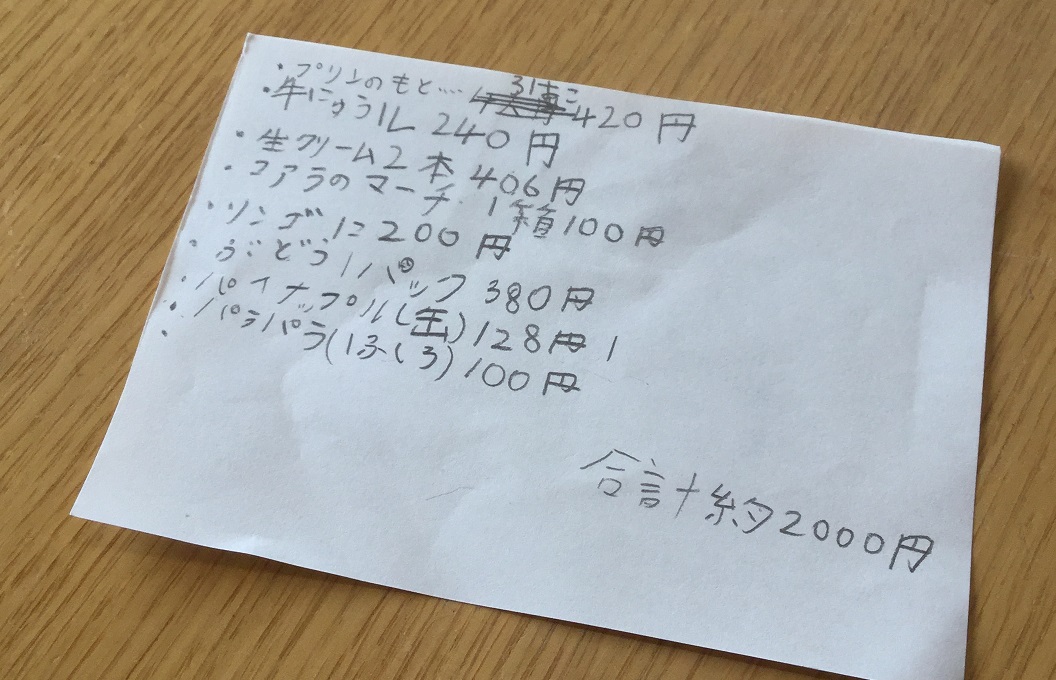 ・プリンのもと…… 3はこ 420円
・牛にゅう1L 240円
・生クリーム2本 406円
・コアラのマーチ 1箱100円
・リンゴ 1こ 200円
・ぶどう 1パック 380円
・パイナップル(缶)128円 1
・パラパラ(1ふくろ)100円
・
合計約2000円